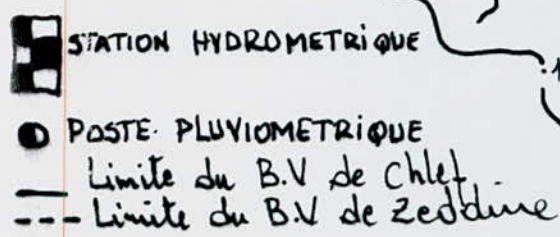 STATION HYDROMETRIQUE
POSTE PLUVIOMETRIQUE
Limite du B.V de Chlef
Limite du B.V de Zeddine